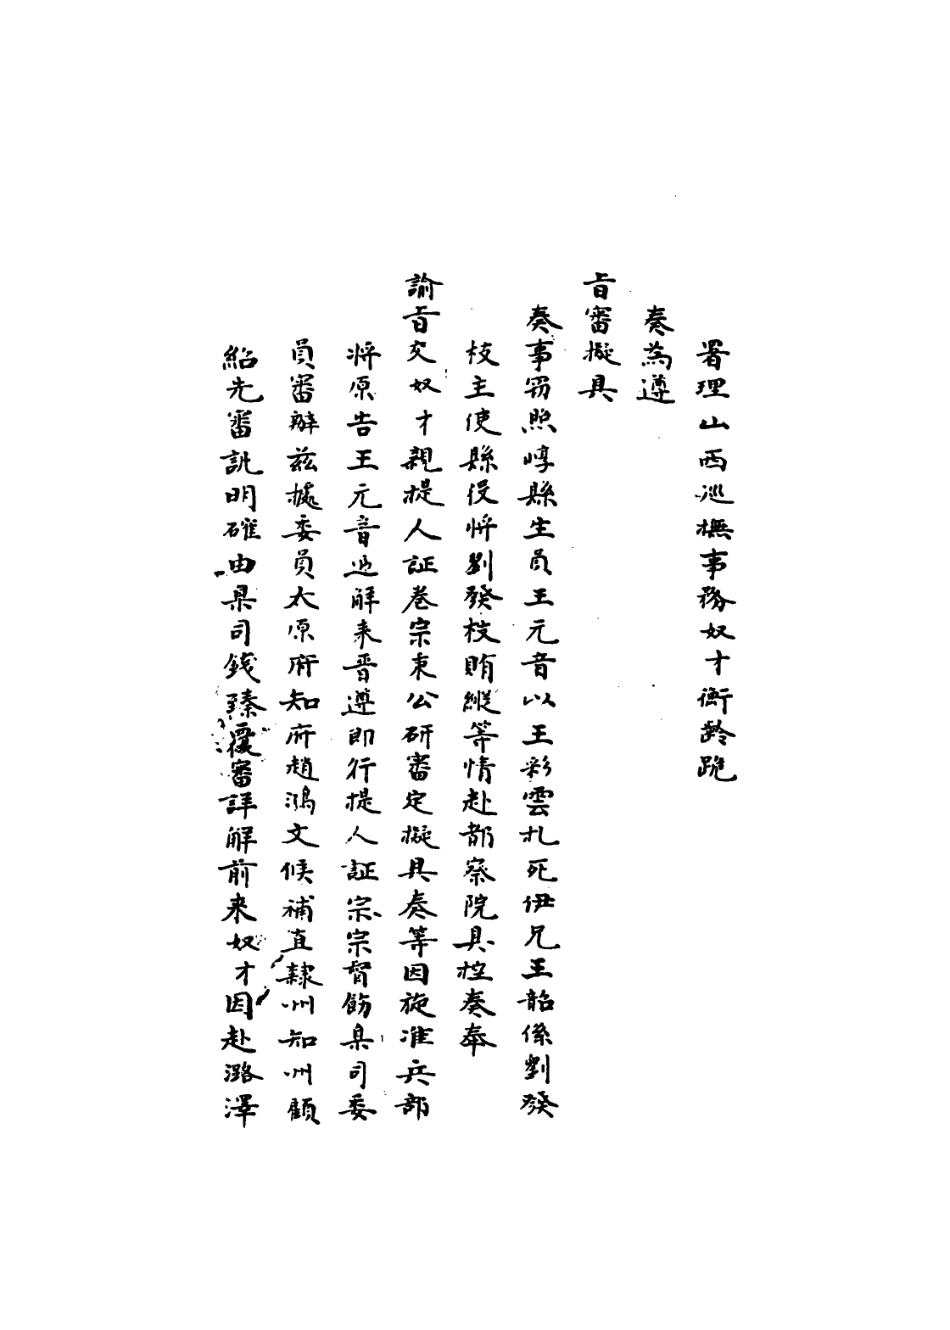 署理山西巡撫事務奴才衡齡跪
奏為遵
旨審擬具
奏事窃照崞縣生員王元音以王彩雲扎死伊兄王韶係劉發
枝主使縣役將劉發枝賄縱等情赴都察院具控奏奉
諭旨交奴才親提人証卷宗秉公研審定擬具奏等因旋准兵部
將原告王元音遞解来晋遵即行提人証宗宗督飭臬司委
員審辦茲據委員太原府知府趙鴻文候補直隸州知州顧
紹先審訊明確由臬司錢臻覆審詳解前来奴才因赴潞澤